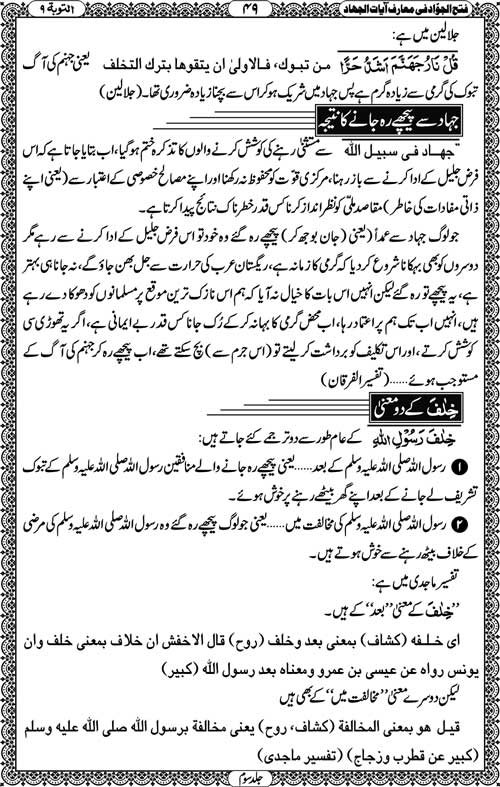 فتح الجوّاد فی معارف آیات الجہاد
۴۹
التوبة ۹
جلالین میں ہے:
قُلْ نَارُ جَهَنَّمَ اَشَدُّ حَرًّا من تبوك، فالاولیٰ ان یتقوها بترك التخلف یعنی جہنم کی آگ
تبوک کی گرمی سے زیادہ گرم ہے پس جہاد میں شریک ہو کر اس سے بچنا زیادہ ضروری تھا۔ (جلالین)
جہاد سے پیچھے رہ جانے کا نتیجہ
”جهاد فی سبیل اللہ“ سے مستثنیٰ رہنے کی کوشش کرنے والوں کا تذکرہ ختم ہو گیا، اب بتایا جاتا ہے کہ اس
فرض جلیل کے ادا کرنے سے باز رہنا، مرکزی قوت کو محفوظ نہ رکھنا اور اپنے مصالح خصوصی کے اعتبار سے (یعنی اپنے
ذاتی مفادات کی خاطر) مقاصد ملّی کو نظر انداز کرنا کس قدر خطرناک نتائج پیدا کرتا ہے۔
جو لوگ جہاد سے عمداً (یعنی جان بوجھ کر) پیچھے رہ گئے وہ خود تو اس فرض جلیل کے ادا کرنے سے رہے مگر
دوسروں کو بھی بہکانا شروع کر دیا کہ گرمی کا زمانہ ہے، ریگستان عرب کی حرارت سے جل بھن جاؤ گے، نہ جانا ہی بہتر
ہے، یہ پیچھے تو رہ گئے لیکن انہیں اس بات کا خیال نہ آیا کہ ہم اس نازک ترین موقع پر مسلمانوں کو دھوکا دے رہے
ہیں، انہیں اب تک ہم پر اعتماد رہا، اب محض گرمی کا بہانہ کر کے رُک جانا کس قدر بے ایمانی ہے، اگر یہ تھوڑی سی
کوشش کرتے، اور اس تکلیف کو برداشت کر لیتے تو (اس جرم سے) بچ سکتے تھے، اب پیچھے رہ کر جہنم کی آگ کے
مستوجب ہوئے……(تفسیر الفرقان)
خِلٰفَ کے دو معنیٰ
خِلٰفَ رَسُوْلِ اللّٰہِ کے عام طور سے دو ترجمے کئے جاتے ہیں:
۱ رسول اللہ صلی اللہ علیہ وسلم کے بعد……یعنی پیچھے رہ جانے والے منافقین رسول اللہ صلی اللہ علیہ وسلم کے تبوک
تشریف لے جانے کے بعد اپنے گھر بیٹھے رہنے پر خوش ہوئے۔
۲ رسول اللہ صلی اللہ علیہ وسلم کی مخالفت میں……یعنی جو لوگ پیچھے رہ گئے وہ رسول اللہ صلی اللہ علیہ وسلم کی مرضی
کے خلاف بیٹھ رہنے سے خوش ہوتے ہیں۔
تفسیر ماجدی میں ہے:
”خِلٰفَ کے معنیٰ ”بعد“ کے ہیں۔
ای خلفه (کشاف) بمعنی بعد وخلف (روح) قال الاخفش ان خلاف بمعنی خلف وان
یونس رواه عن عیسی بن عمرو ومعناه بعد رسول اللہ (کبیر)
لیکن دوسرے معنیٰ ”مخالفت میں“ کے بھی ہیں
قیل هو بمعنی المخالفة (کشاف، روح) یعنی مخالفة برسول اللہ صلی اللہ علیه وسلم
(کبیر عن قطرب وزجاج) (تفسیر ماجدی)
جلد سوم